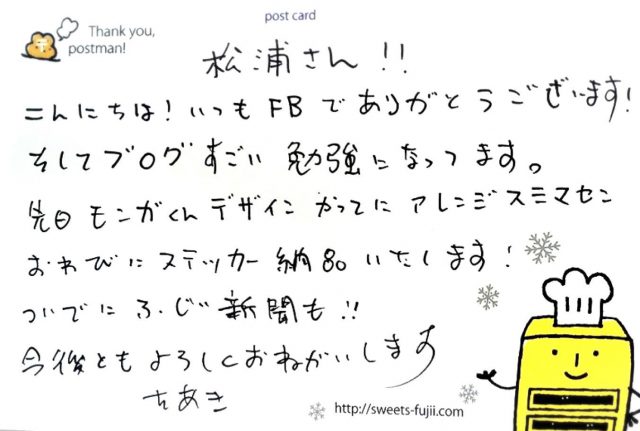 post card
Thank you,
postman!
松浦さん!!
こんにちは!いつもFBでありがとうございます!
そしてブログすごい勉強になってます。
先日モンガくんデザインかってにアレンジスミマセン
おわびにステッカー納品いたします!
ついでにふじい新聞も!!
今後ともよろしくおねがいします
ちあき
http://sweets-fujii.com